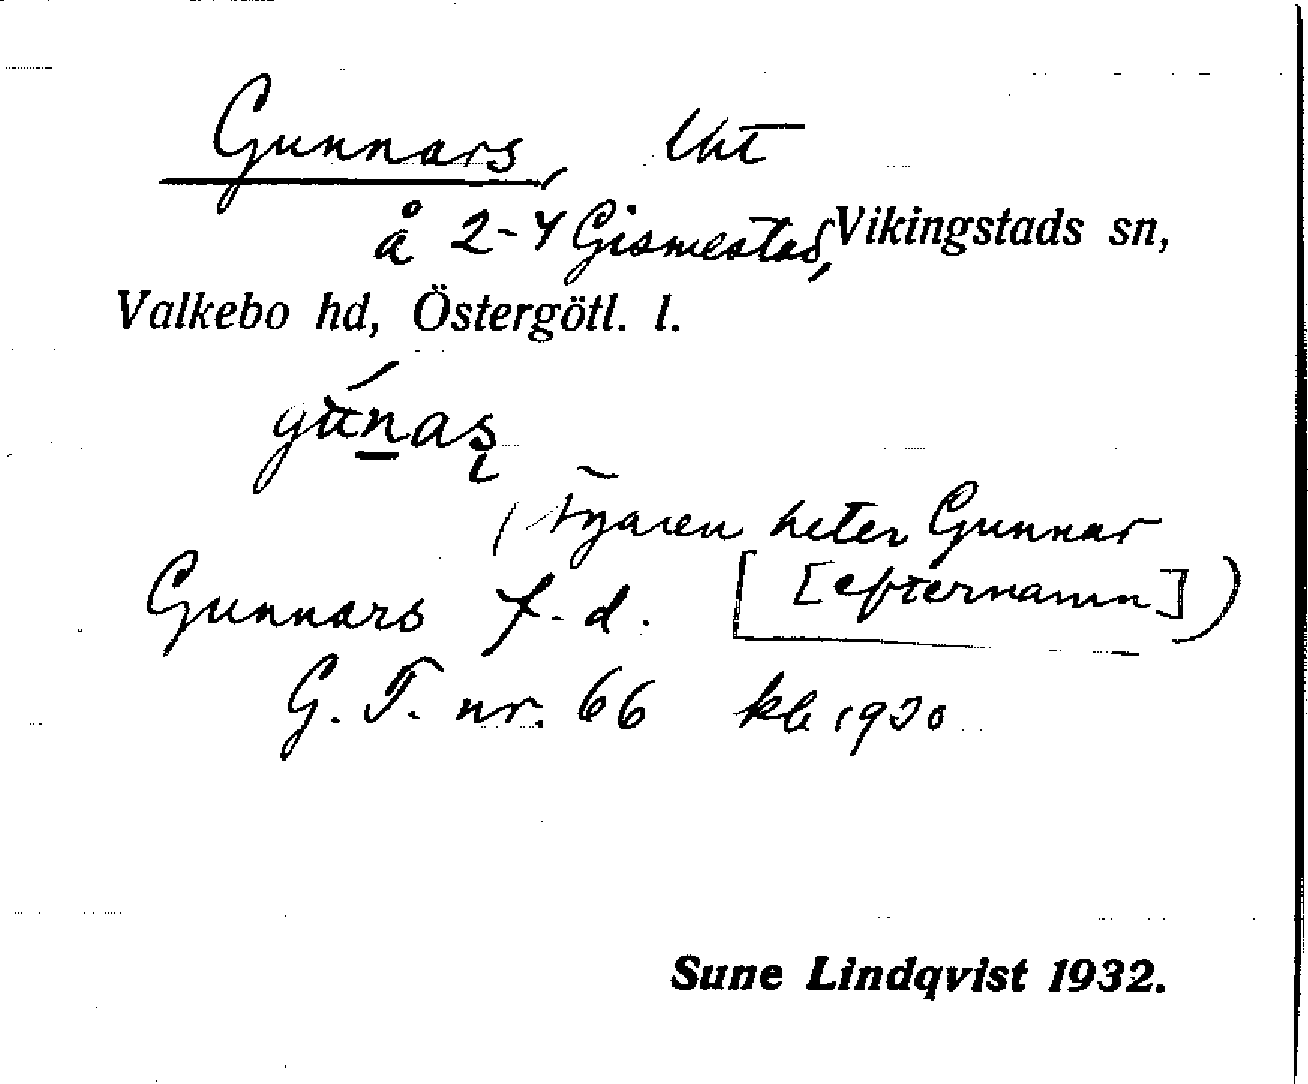 Gunnars, lht
å 2-4 Gismestad, Vikingstads sn,
Valkebo hd, Östergötl. l.
gúnas
( Tyaren heter Gunnar
Gunnars f.d. [efternamn] )
G. T. nr. 66 kb 1930
Sune Lindqvist 1932.